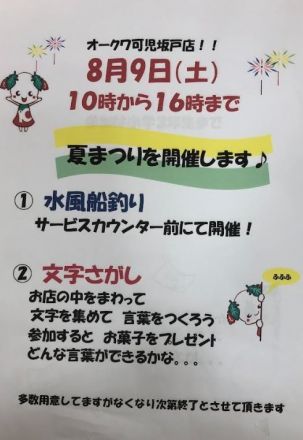 オークワ可児坂戸店！！
8月9日(土)
10時から16時まで
夏まつりを開催します♪
① 水風船釣り
サービスカウンター前にて開催！
② 文字さがし
ふふふ
お店の中をまわって
文字を集めて 言葉をつくろう
参加すると お菓子をプレゼント
どんな言葉ができるかな。。。
多数用意してますがなくなり次第終了とさせて頂きます